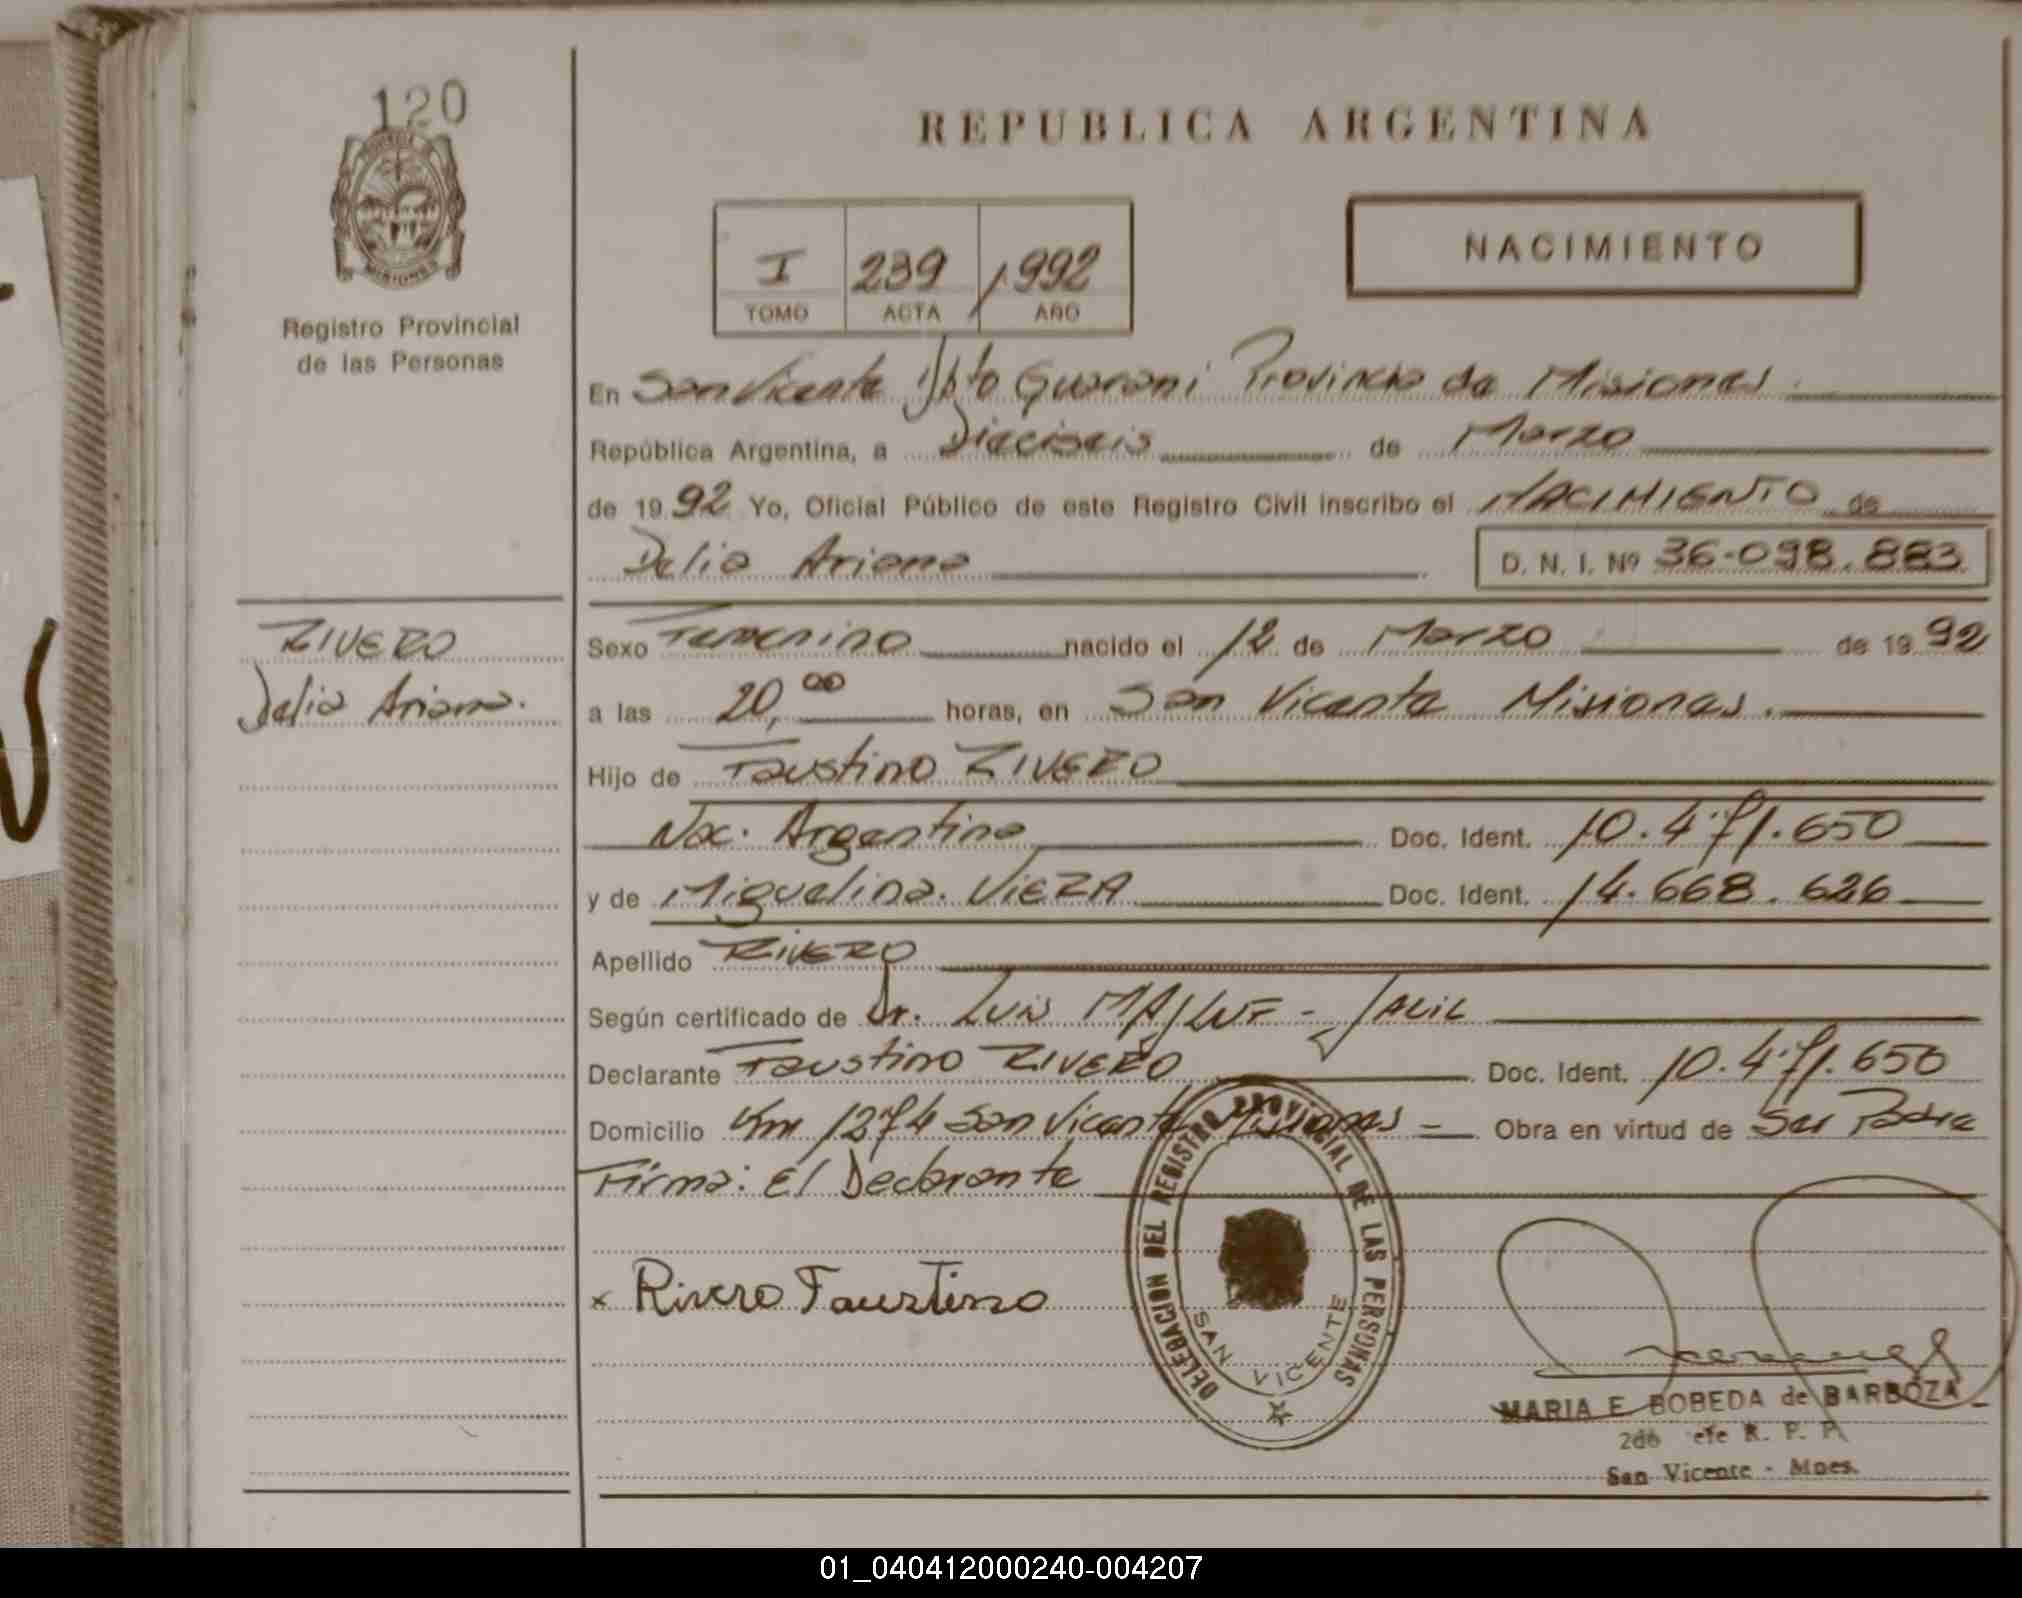 120
MISIONES
Registro Provincial
de las Personas
RIVERO
Delia Ariana.
REPUBLICA ARGENTINA
I 239 1992
TOMO ACTA AÑO
NACIMIENTO
En San Vicente Dpto Guarani Provincia de Misiones.
República Argentina, a Dieciseis de Marzo
de 1992 Yo, Oficial Público de este Registro Civil inscribo el NACIMIENTO de
Delia Ariana D. N. I. Nº 36.098.883
Sexo Femenino nacido el 12 de Marzo de 1992
a las 20,00 horas, en San Vicente Misiones.
Hijo de Faustino RIVERO
Nac. Argentina Doc. Ident. 10.471.650
y de Miguelina. VIERA Doc. Ident. 14.668.626
Apellido RIVERO
Según certificado de Dr. Luis MAJLUF - JALIL
Declarante Faustino RIVERO Doc. Ident. 10.471.650
Domicilio Km 1274 San Vicente Misiones - Obra en virtud de Ser Padre
Firma: El Declarante
x Rivero Faustino
DELEGACION DEL REGISTRO PROVINCIAL DE LAS PERSONAS
SAN VICENTE
MARIA E. BOBEDA de BARBOZA
2do efe R. P. P.
San Vicente - Mnes.
01_040412000240-004207